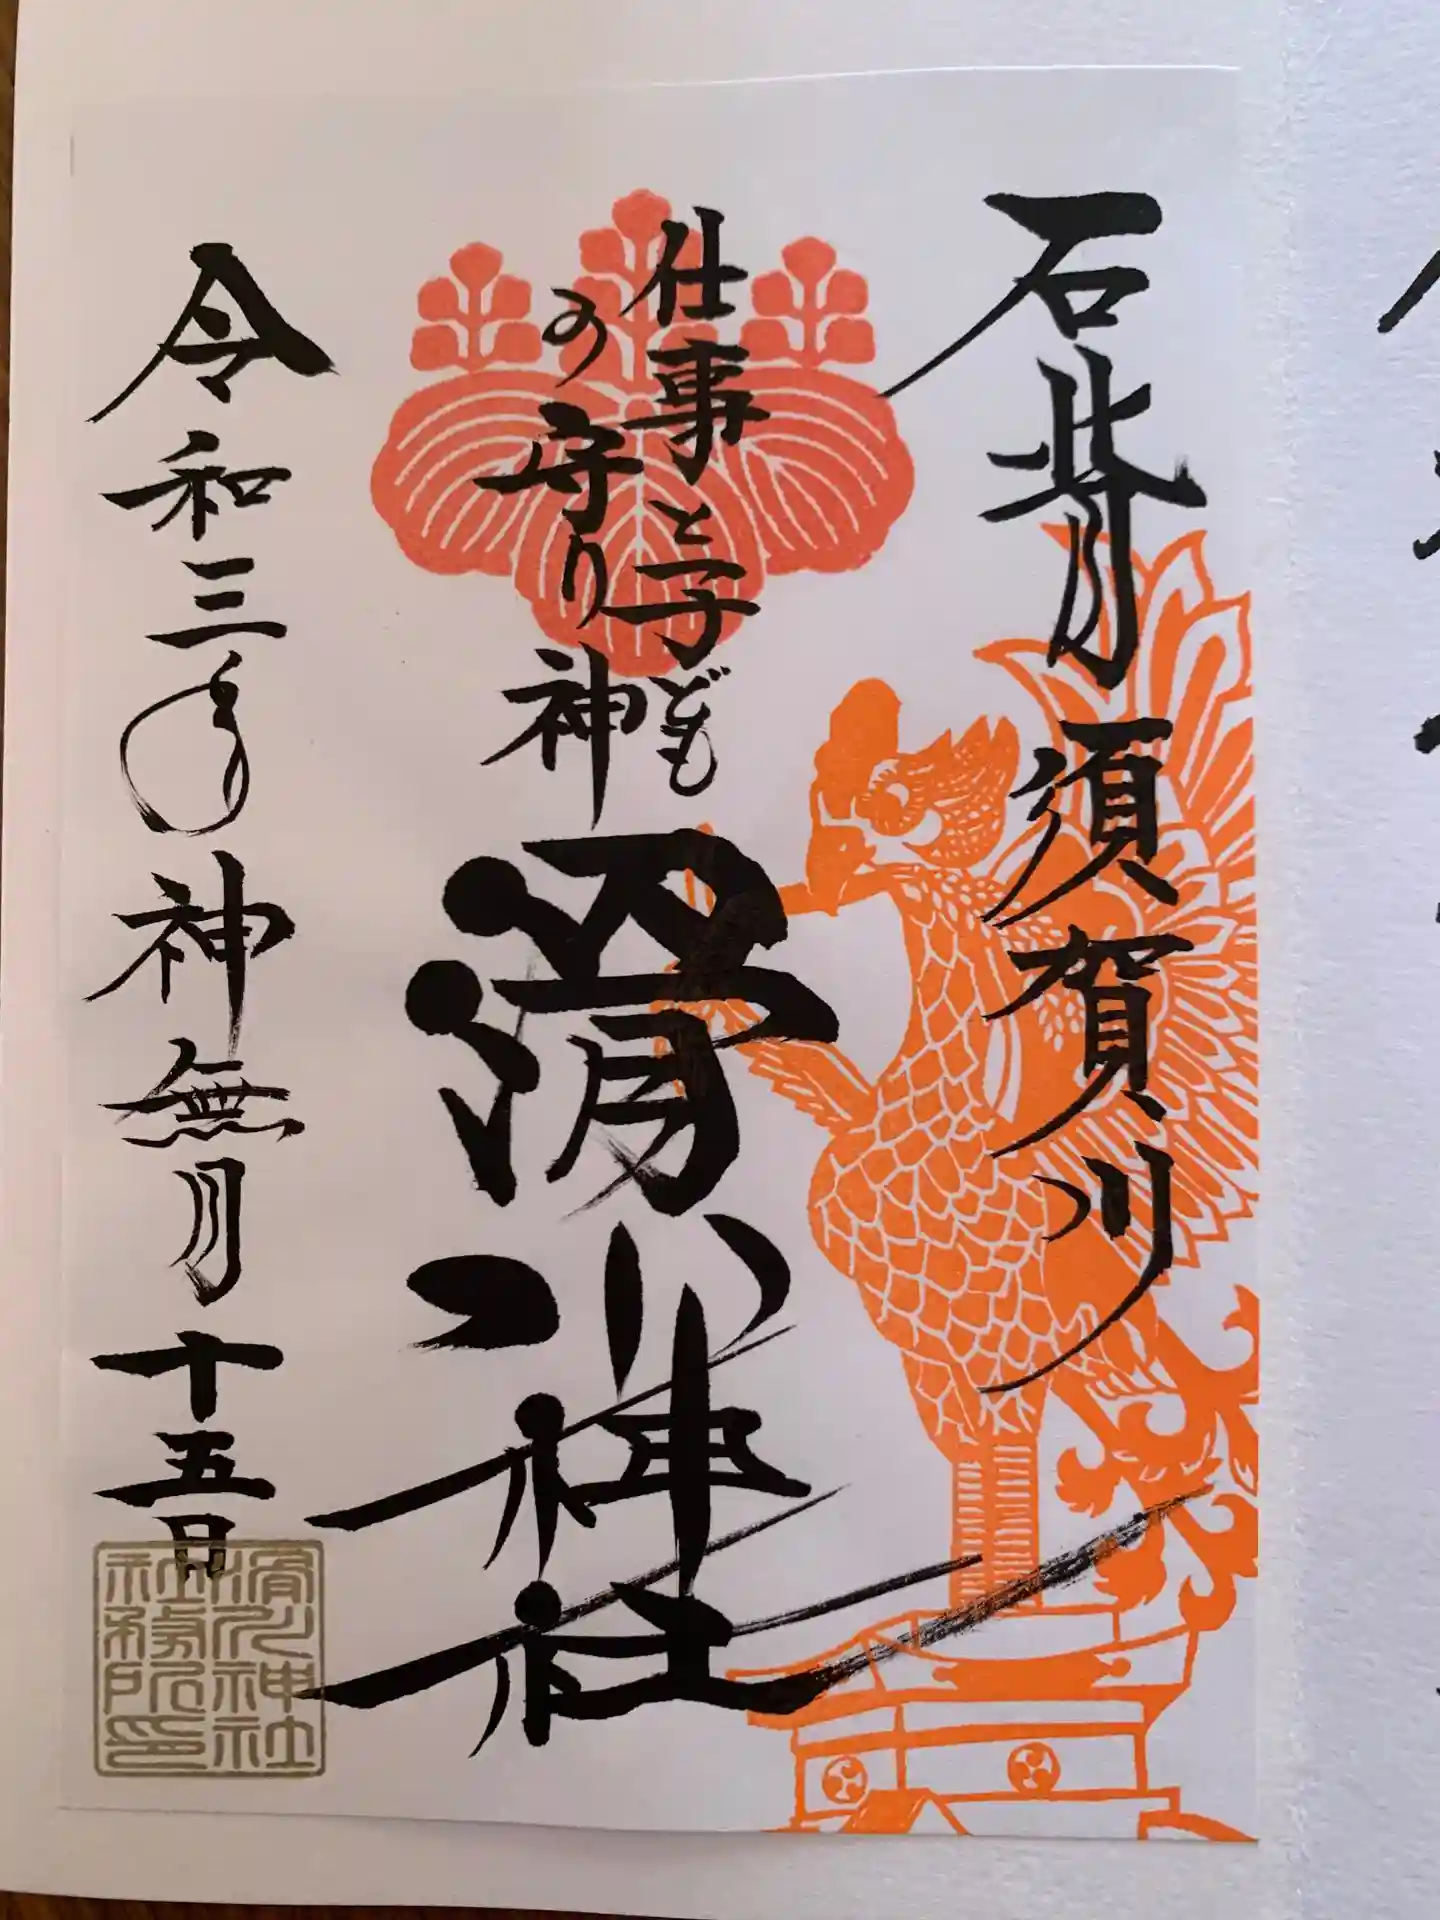 石背須賀川
仕事と子ども
の守り神
滑川神社
令和三年神無月十五日
滑川神社
社務所印